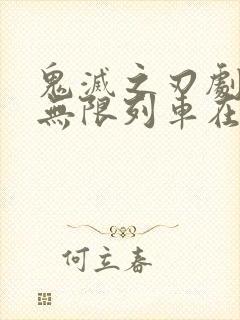 鬼滅之刃劇
無限列車在
何立春